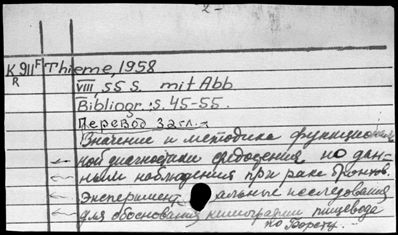 2-
K 911 F Thieme, 1958
R VIII, 55 S. mit Abb
Bibliogr. s. 45-55.
Перевод загл.:
Значение и методика функциональ
ной диагностики средостения по дан-
ными наблюдения при раке бронхов.
Эксперимент альные исследования
для обоснования кимографии пищевода
по